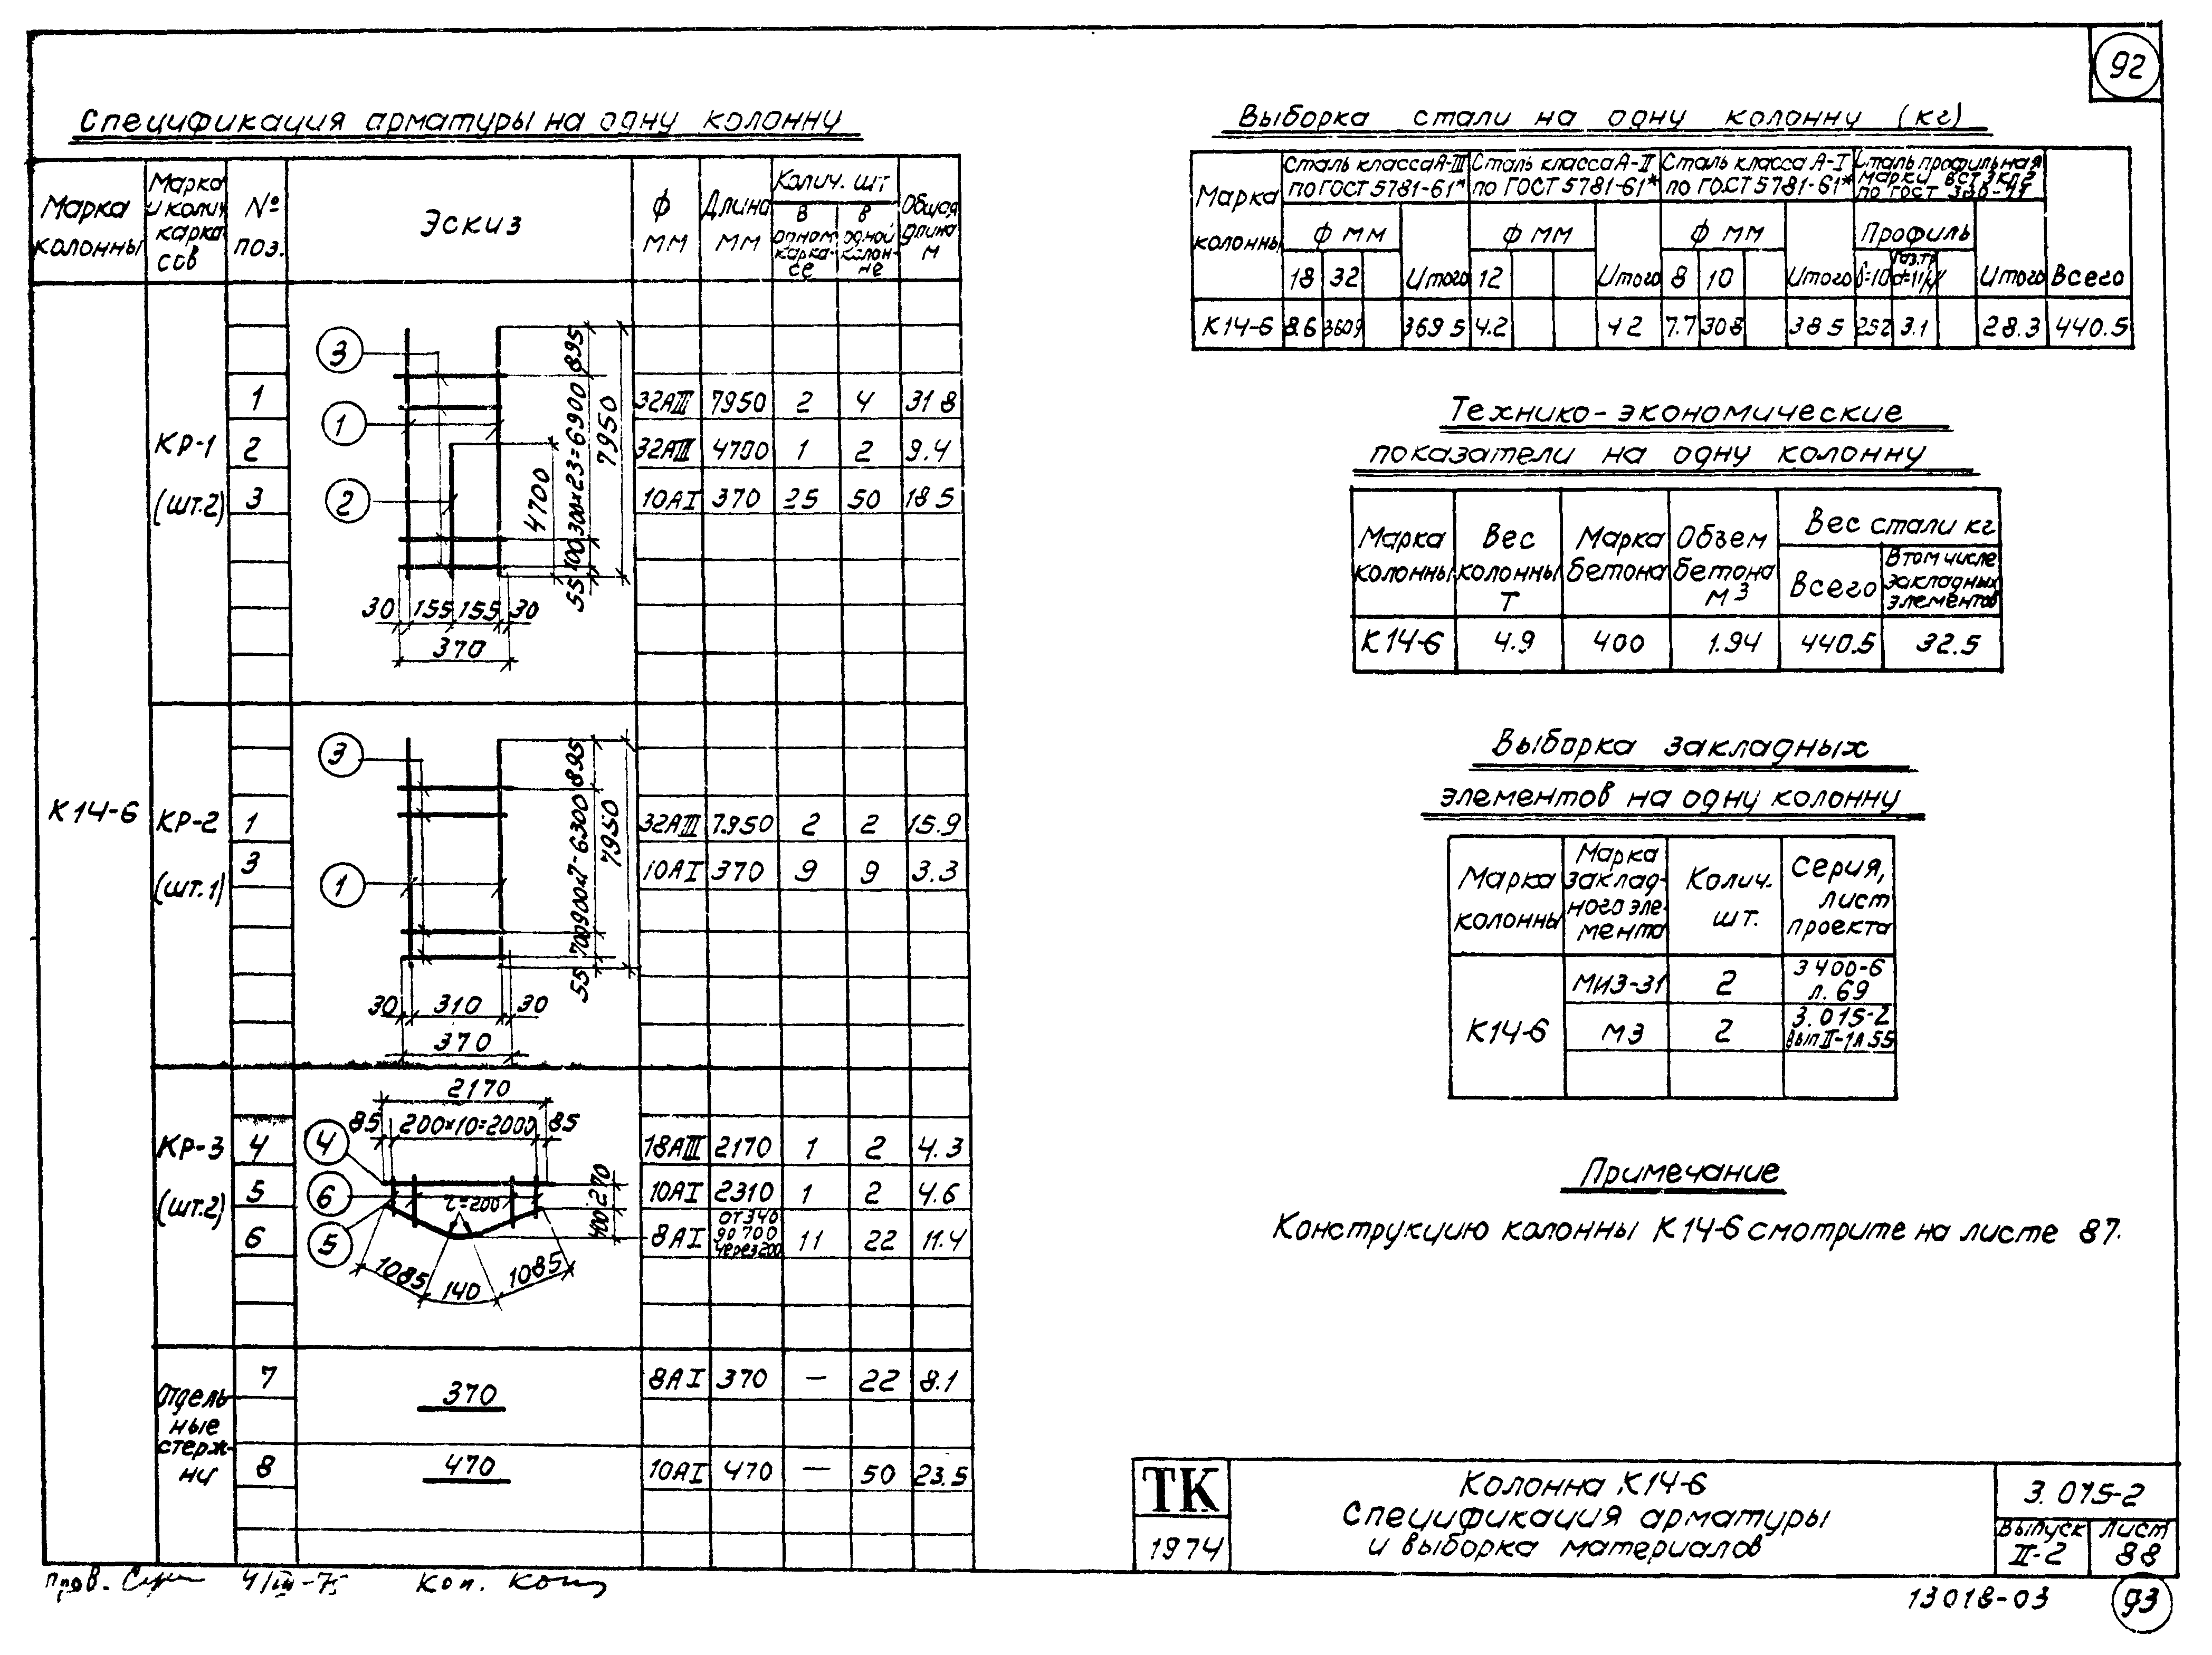 92
Спецификация арматуры на одну колонну
Марка колонны
Марка и колич карка сов
№ поз.
Эскиз
ф мм
Длина мм
Колич. шт
в одном карка- се
в одной колон- не
Общая длина м
К14-6
КР-1
(шт.2)
1 32АIII 7950 2 4 31 8
2 32АIII 4700 1 2 9.4
3 10АI 370 25 50 18.5
3
1
2
895
300х23=6900
100
55
7950
4700
30 155 155 30
370
КР-2
(шт.1)
1 32АIII 7950 2 2 15.9
3 10АI 370 9 9 3.3
3
1
895
900х7-6300
700
55
7950
30 310 30
370
КР-3
(шт.2)
4 18АIII 2170 1 2 4.3
5 10АI 2310 1 2 4.6
6 8АI от 340 до 700 через 200 11 22 11.4
2170
85 200х10=2000 85
4
6
5
r=200
270
400
1085 140 1085
Отдель ные стерж- ни
7 370 8АI 370 — 22 8.1
8 470 10АI 470 — 50 23.5
Выборка стали на одну колонну (кг)
Марка колонны
Сталь класса А-III по ГОСТ 5781-61*
Сталь класса А-II по ГОСТ 5781-61*
Сталь класса А-I по ГОСТ 5781-61*
Сталь профильная марки ВСт3кп2 по ГОСТ
ф мм ф мм ф мм Профиль
18 32 Итого 12 Итого 8 10 Итого δ=10 Итого Всего
К14-6 8.6 360.9 369 5 4.2 4 2 7.7 308 38 5 252 3.1 28.3 440.5
Технико-экономические
показатели на одну колонну
Марка колонны
Вес колонны т
Марка бетона
Объем бетона м3
Вес стали кг
Всего
В том числе закладных элементов
К14-6 4.9 400 1.94 440.5 32.5
Выборка закладных
элементов на одну колонну
Марка колонны
Марка заклад- ного эле- мента
Колич. шт.
Серия, лист проекта
К14-6
МИЗ-31 2 3 400-6 л. 69
М3 2 3.015-2 Вып II-1 л 55
Примечание
Конструкцию колонны К14-6 смотрите на листе 87.
ТК
1974
Колонна К14-6
Спецификация арматуры
и выборка материалов
3.015-2
Выпуск II-2
Лист 88
пров.
Коп.
13018-03
93